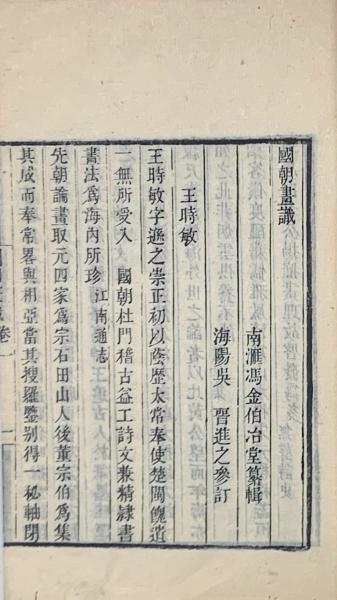 國朝畫識
南滙馮金伯冶堂纂輯
海陽吳 晋進之參訂
王時敏
王時敏字遜之崇正初以蔭歷太常奉使楚閩餽遺
一無所受入 國朝杜門稽古益工詩文兼精隷書
畫法爲海內所珍 江南通志
先朝論畫取元四家爲宗石田山人後董宗伯爲集
其成而奉常畧與相亞當其搜羅鑒别得一秘軸閉
卷一
一